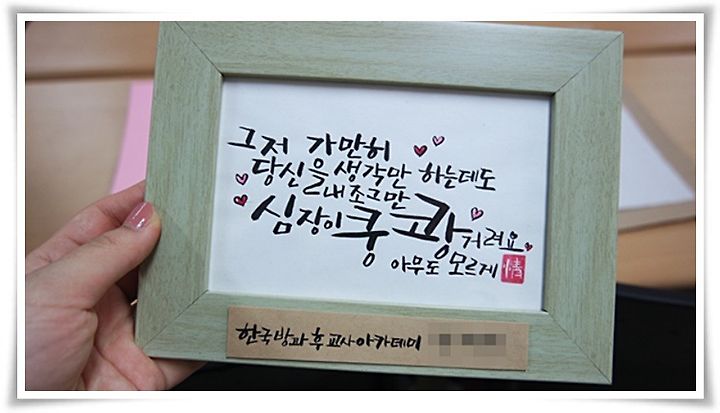 그저 가만히
당신을 생각만 하는데도
내 조그만
심장이 쿵쾅거려요
아무도 모르게
情
한국방과후교사아카데미